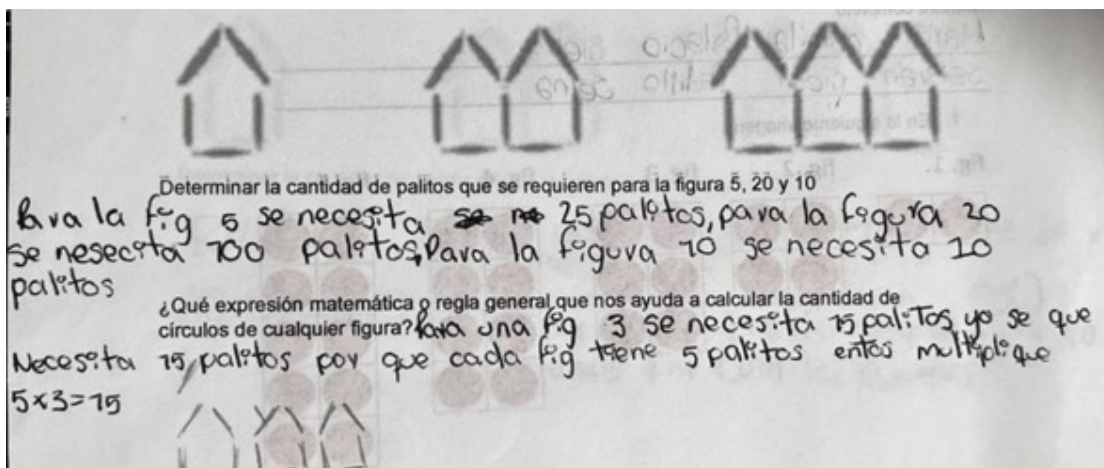 Determinar la cantidad de palitos que se requieren para la figura 5, 20 y 10
Para la fig 5 se necesita 25 palitos, para la figura 20
se nesecita 100 palitos, Para la figura 10 se necesita 10
palitos
¿Qué expresión matemática o regla general que nos ayuda a calcular la cantidad de
círculos de cualquier figura? Para una fig 3 se necesita 15 paliTos, yo se que
Necesita 15 palitos por que cada fig tiene 5 palitos entos multiplique
5x3=15